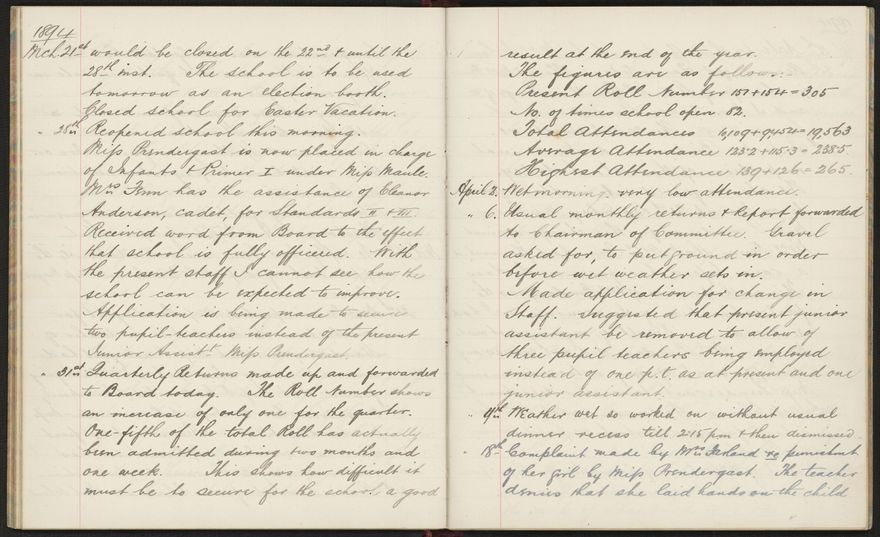 1894
Mch. 21st would be closed on the 22nd & until the
28th inst. The school is to be used
tomorrow as an election booth.
Closed school for Easter Vacation.
" 28th Reopened school this morning.
Miss Prendergast is now placed in charge
of Infants & Primer I under Miss Maule.
Mrs Fenn has the assistance of Eleanor
Anderson, cadet, for Standards II & III.
Received word from Board to the effect
that school is fully officered. With
the present staff I cannot see how the
school can be expected to improve.
Application is being made to secure
two pupil-teachers instead of the present
Junior Assist. Miss Prendergast.
" 31st Quarterly Returns made up and forwarded
to Board today. The Roll Number shows
an increase of only one for the quarter.
One-fifth of the total Roll has actually
been admitted during two months and
one week. This shows how difficult it
must be to secure for the school a good
result at the end of the year.
The figures are as follows:-
Present Roll Number 151+154=305
No. of times school open. 82.
Total Attendances 10,109+9454=19,563
Average Attendance 123.2+115.3=238.5
Highest Attendance 139+126=265.
April 2. Wet morning. very low attendance.
" 6. Usual monthly returns & Report forwarded
to Chairman of Committee. Gravel
asked for, to put ground in order
before wet weather sets in.
Made application for change in
Staff. Suggested that present junior
assistant be removed to allow of
three pupil teachers being employed
instead of one p.t. as at present and one
junior assistant.
" 9th Weather wet so worked on without usual
dinner recess till 2.15 pm & then dismissed.
" 18th Complaint made by Mrs re punishment
of her girl by Miss Prendergast. The teacher
denies that she laid hands on the child